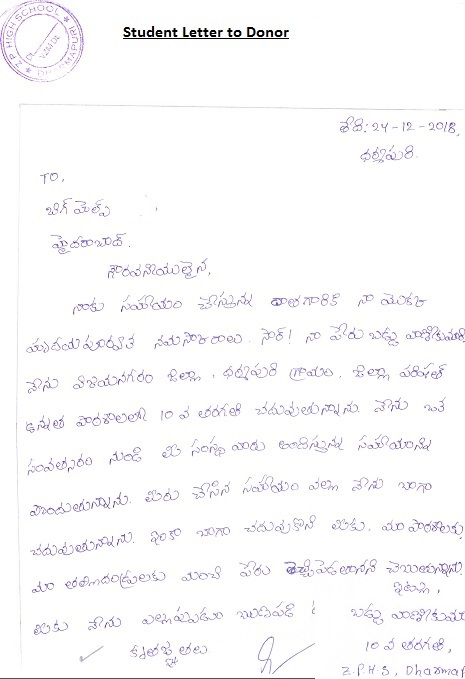 Z P HIGH SCHOOL
DHARMAPURI
Student Letter to Donor
తేది: 24-12-2018,
ధర్మపురి.
TO,
బిగ్ హెల్ప్
హైదరాబాద్.
గౌరవనీయులైన,
నాకు సహాయం చేస్తున్న దాతగారికి నా యొక్క
హృదయపూర్వక నమస్కారాలు. సార్! నా పేరు బడ్డు వాణికుమారి
నేను విజయనగరం జిల్లా, ధర్మపురి గ్రామం, జిల్లా పరిషత్
ఉన్నత పాఠశాలలో 10 వ తరగతి చదువుతున్నాను. నేను ఒక
సంవత్సరం నుండి మీ సంస్థ వారు అందిస్తున్న సహాయాన్ని
పొందుతున్నాను. మీరు చేసిన సహాయం వల్ల నేను బాగా
చదువుతున్నాను. ఇంకా బాగా చదువుకొని మీకు, మా పాఠశాలకు,
మా తల్లిదండ్రులకు మంచి పేరు తెచ్చిపెడతానని చెబుతున్నాను.
ఇట్లు,
మీకు నేను ఎల్లప్పుడు ఋణపడి
బడ్డు వాణికుమా
కృతజ్ఞతలు
10 వ తరగతి,
Z.P.H.S, Dharmap